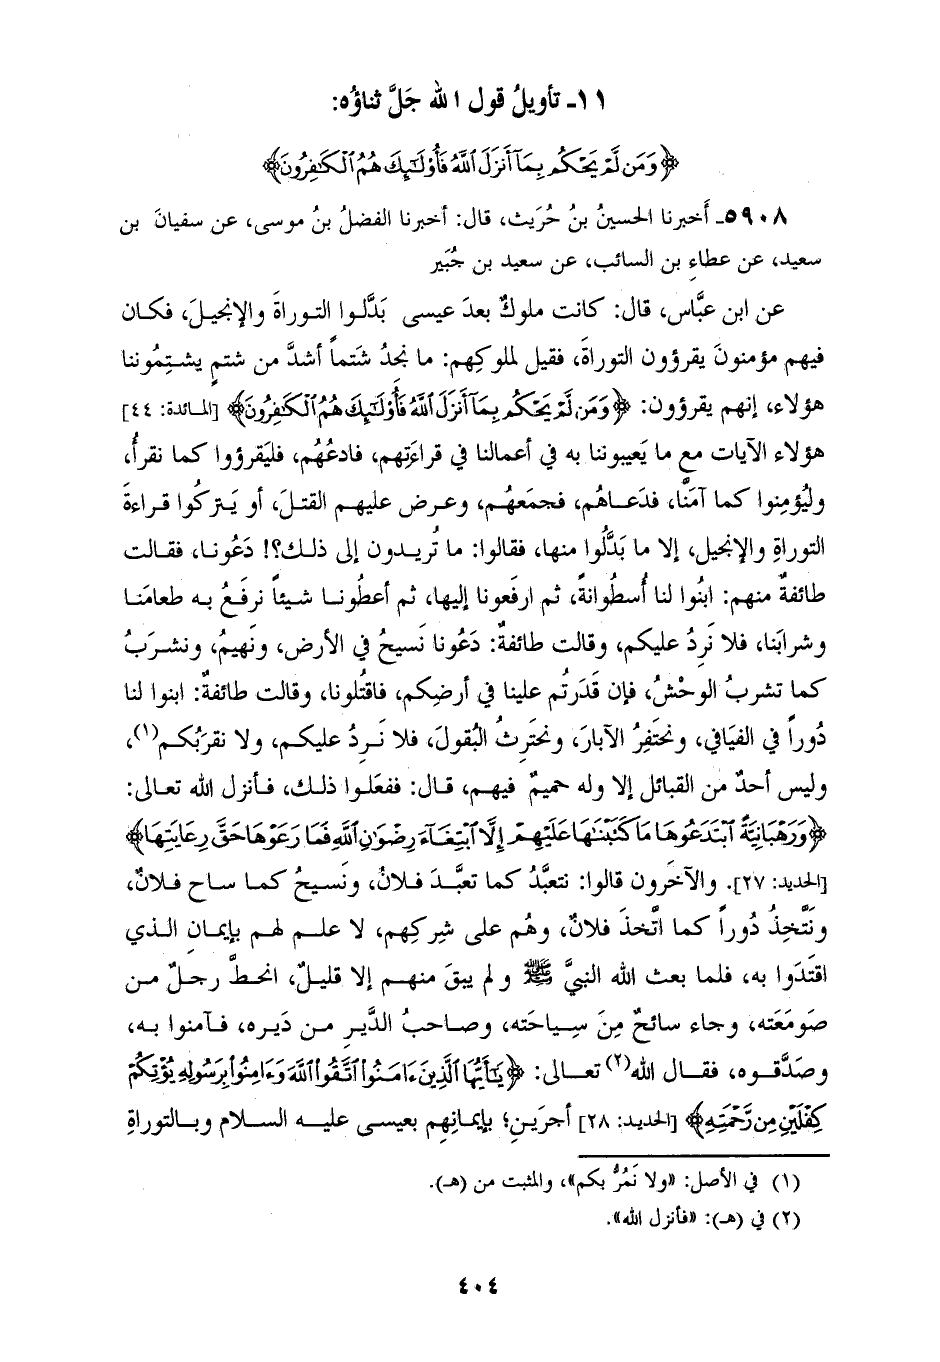 ١١ـ تأويلُ قول الله جَلَّ ثناؤُه:
﴿وَمَن لَّمْ يَحْكُم بِمَآ أَنزَلَ ٱللَّهُ فَأُو۟لَـٰٓئِكَ هُمُ ٱلْكَـٰفِرُونَ﴾
٥٩٠٨ـ أَخبرنا الحسينُ بنُ حُرَيث، قال: أخبرنا الفضلُ بنُ موسى، عن سفيانَ بن
سعيد، عن عطاءِ بن السائب، عن سعيد بن جُبَير
عن ابن عبَّاس، قال: كانت ملوكٌ بعدَ عيسى بَدَّلوا التوراةَ والإنجيلَ، فكان
فيهم مؤمنونَ يقرؤون التوراةَ، فقيل لملوكِهم: ما نجدُ شَتماً أشدَّ من شتمٍ يشتِمُوننا
هؤلاء، إنهم يقرؤون: ﴿وَمَن لَّمْ يَحْكُم بِمَآ أَنزَلَ ٱللَّهُ فَأُو۟لَـٰٓئِكَ هُمُ ٱلْكَـٰفِرُونَ﴾ [المائدة: ٤٤]
هؤلاء الآيات مع ما يَعيبوننا به في أعمالنا في قراءتِهم، فادعُهُم، فليَقرؤوا كما نقرأُ،
وليُؤمِنوا كما آمَنَّا، فدَعاهُم، فجمَعهُم، وعرض عليهم القتلَ، أو يَتركُوا قراءةَ
التوراةِ والإنجيل، إلا ما بَدَّلُوا منها، فقالوا: ما تُريدون إلى ذلك؟! دَعُونا، فقالت
طائفةٌ منهم: ابنُوا لنا أُسطُوانةً، ثم ارفَعونا إليها، ثم أعطُونا شيئاً نرفَعُ به طعامَنا
وشرابَنا، فلا نَرِدُ عليكم، وقالت طائفةٌ: دَعُونا نَسيحُ في الأرض، ونَهيمُ، ونشربُ
كما تشربُ الوحْشُ، فإن قَدَرتُم علينا في أرضِكم، فاقتُلونا، وقالت طائفةٌ: ابنوا لنا
دُوراً في الفيَافي، ونحتَفِرُ الآبارَ، ونحتَرِثُ البُقولَ، فلا نَرِدُ عليكم، ولا نقرَبُكم(١)،
وليس أحدٌ من القبائل إلا وله حميمٌ فيهم، قال: ففعَلوا ذلك، فأنزل الله تعالى:
﴿وَرَهْبَانِيَّةً ٱبْتَدَعُوهَا مَا كَتَبْنَـٰهَا عَلَيْهِمْ إِلَّا ٱبْتِغَآءَ رِضْوَٰنِ ٱللَّهِ فَمَا رَعَوْهَا حَقَّ رِعَايَتِهَا﴾
[الحديد: ٢٧]. والآخَرون قالوا: نتعبَّدُ كما تعبَّدَ فلانٌ، ونَسيحُ كما ساح فلانٌ،
ونَتَّخِذُ دُوراً كما اتَّخذَ فلانٌ، وهُم على شِركِهم، لا علم لهم بإيمانِ الذي
اقتَدَوا به، فلما بعث الله النبيَّ ﷺ ولم يبقَ منهم إلا قليلٌ، انحطَّ رجلٌ من
صَومَعَته، وجاء سائحٌ مِنَ سِياحَته، وصاحبُ الدَّيرِ من دَيره، فآمنوا به،
وصَدَّقوه، فقال الله(٢) تعالى: ﴿يَـٰٓأَيُّهَا ٱلَّذِينَ ءَامَنُوا۟ ٱتَّقُوا۟ ٱللَّهَ وَءَامِنُوا۟ بِرَسُولِهِ يُؤْتِكُمْ
كِفْلَيْنِ مِن رَّحْمَتِهِ﴾ [الحديد: ٢٨] أجرَينِ؛ بإيمانِهم بعيسى عليه السلام وبالتوراةِ
(١) في الأصل: «ولا نَمُرُّ بكم»، والمثبت من (هـ).
(٢) في (هـ): «فأنزل الله».
٤٠٤